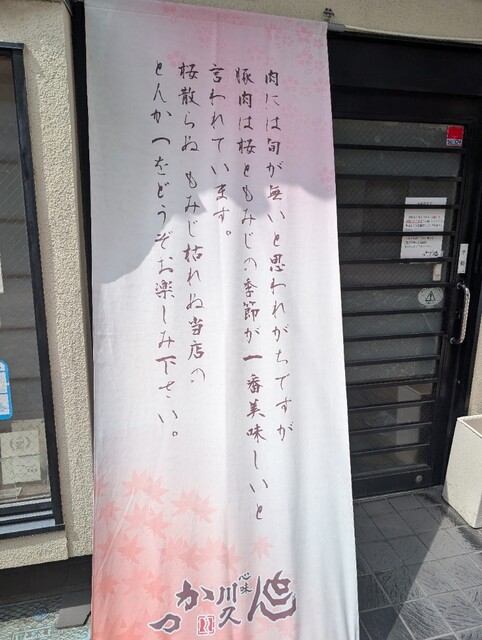 肉には旬が無いと思われがちですが
豚肉は桜ともみじの季節が一番美味しいと
言われています。
桜散らぬもみじ枯れぬ当店の
とんかつをどうぞお楽しみ下さい。
心味
川久
かつ